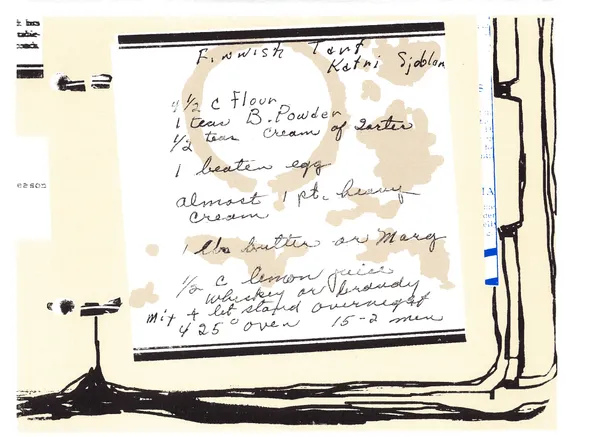 Finnish Tart
Katri Sjoblom
4 1/2 c flour
1 teas B. Powder
1/2 teas Cream of Tarter
1 beaten egg
almost 1 pt. heavy
cream
1 lb butter or Marg
1/2 c lemon juice
whiskey or brandy
mix & let stand overnight
425° oven 15-2 min